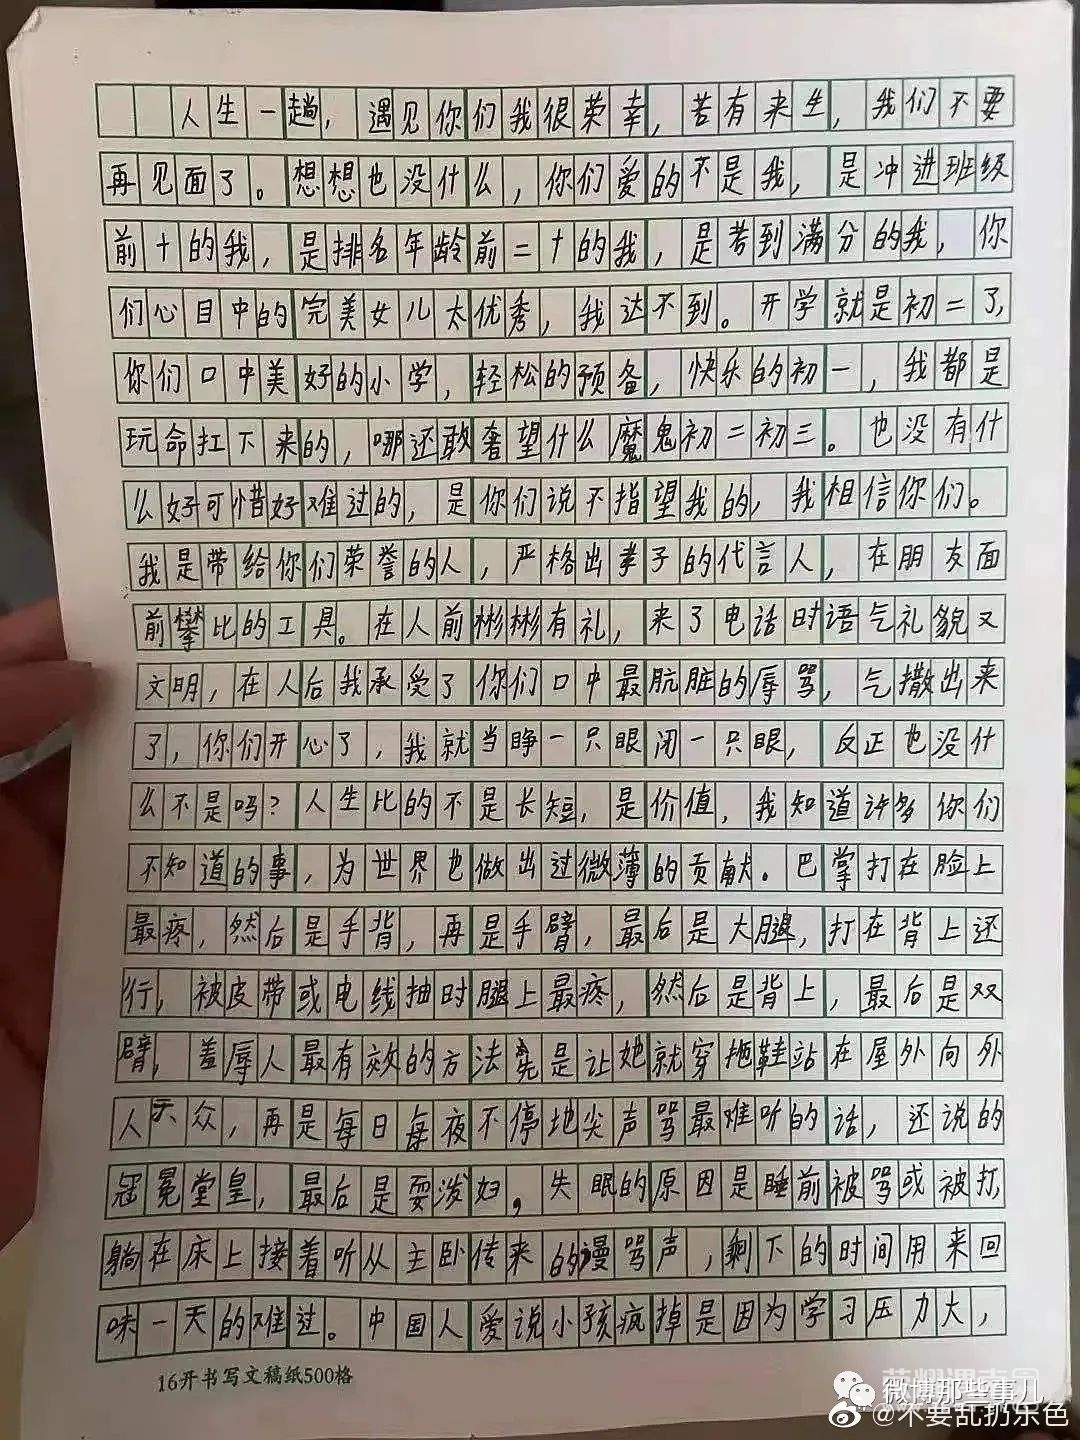 人生一趟，遇见你们我很荣幸，苦有来生，我们不要
再见面了。想想也没什么，你们爱的不是我，是冲进班级
前十的我，是排名年龄前二十的我，是考到满分的我，你
们心目中的完美女儿太优秀，我达不到。开学就是初二了，
你们口中美好的小学，轻松的预备，快乐的初一，我都是
玩命扛下来的，哪还敢奢望什么魔鬼初二初三。也没有什
么好可惜好难过的，是你们说不指望我的，我相信你们。
我是带给你们荣誉的人，严格出孝子的代言人，在朋友面
前攀比的工具。在人前彬彬有礼，来了电话时语气礼貌又
文明，在人后我承受了你们口中最肮脏的辱骂，气撒出来
了，你们开心了，我就当睁一只眼闭一只眼，反正也没什
么不是吗？人生比的不是长短，是价值，我知道许多你们
不知道的事，为世界也做出过微薄的贡献。巴掌打在脸上
最疼，然后是手背，再是手臂，最后是大腿，打在背上还
行，被皮带或电线抽时腿上最疼，然后是背上，最后是双
臂，羞辱人最有效的方法先是让她就穿拖鞋站在屋外向外
人示众，再是每日每夜不停地尖声骂最难听的话，还说的
冠冕堂皇，最后是耍泼妇。失眠的原因是睡前被骂或被打，
躺在床上接着听从主卧传来的谩骂声，剩下的时间用来回
味一天的难过。中国人爱说小孩疯掉是因为学习压力大，
16开书写文稿纸500格
微博那些事儿
@不要乱扔乐色